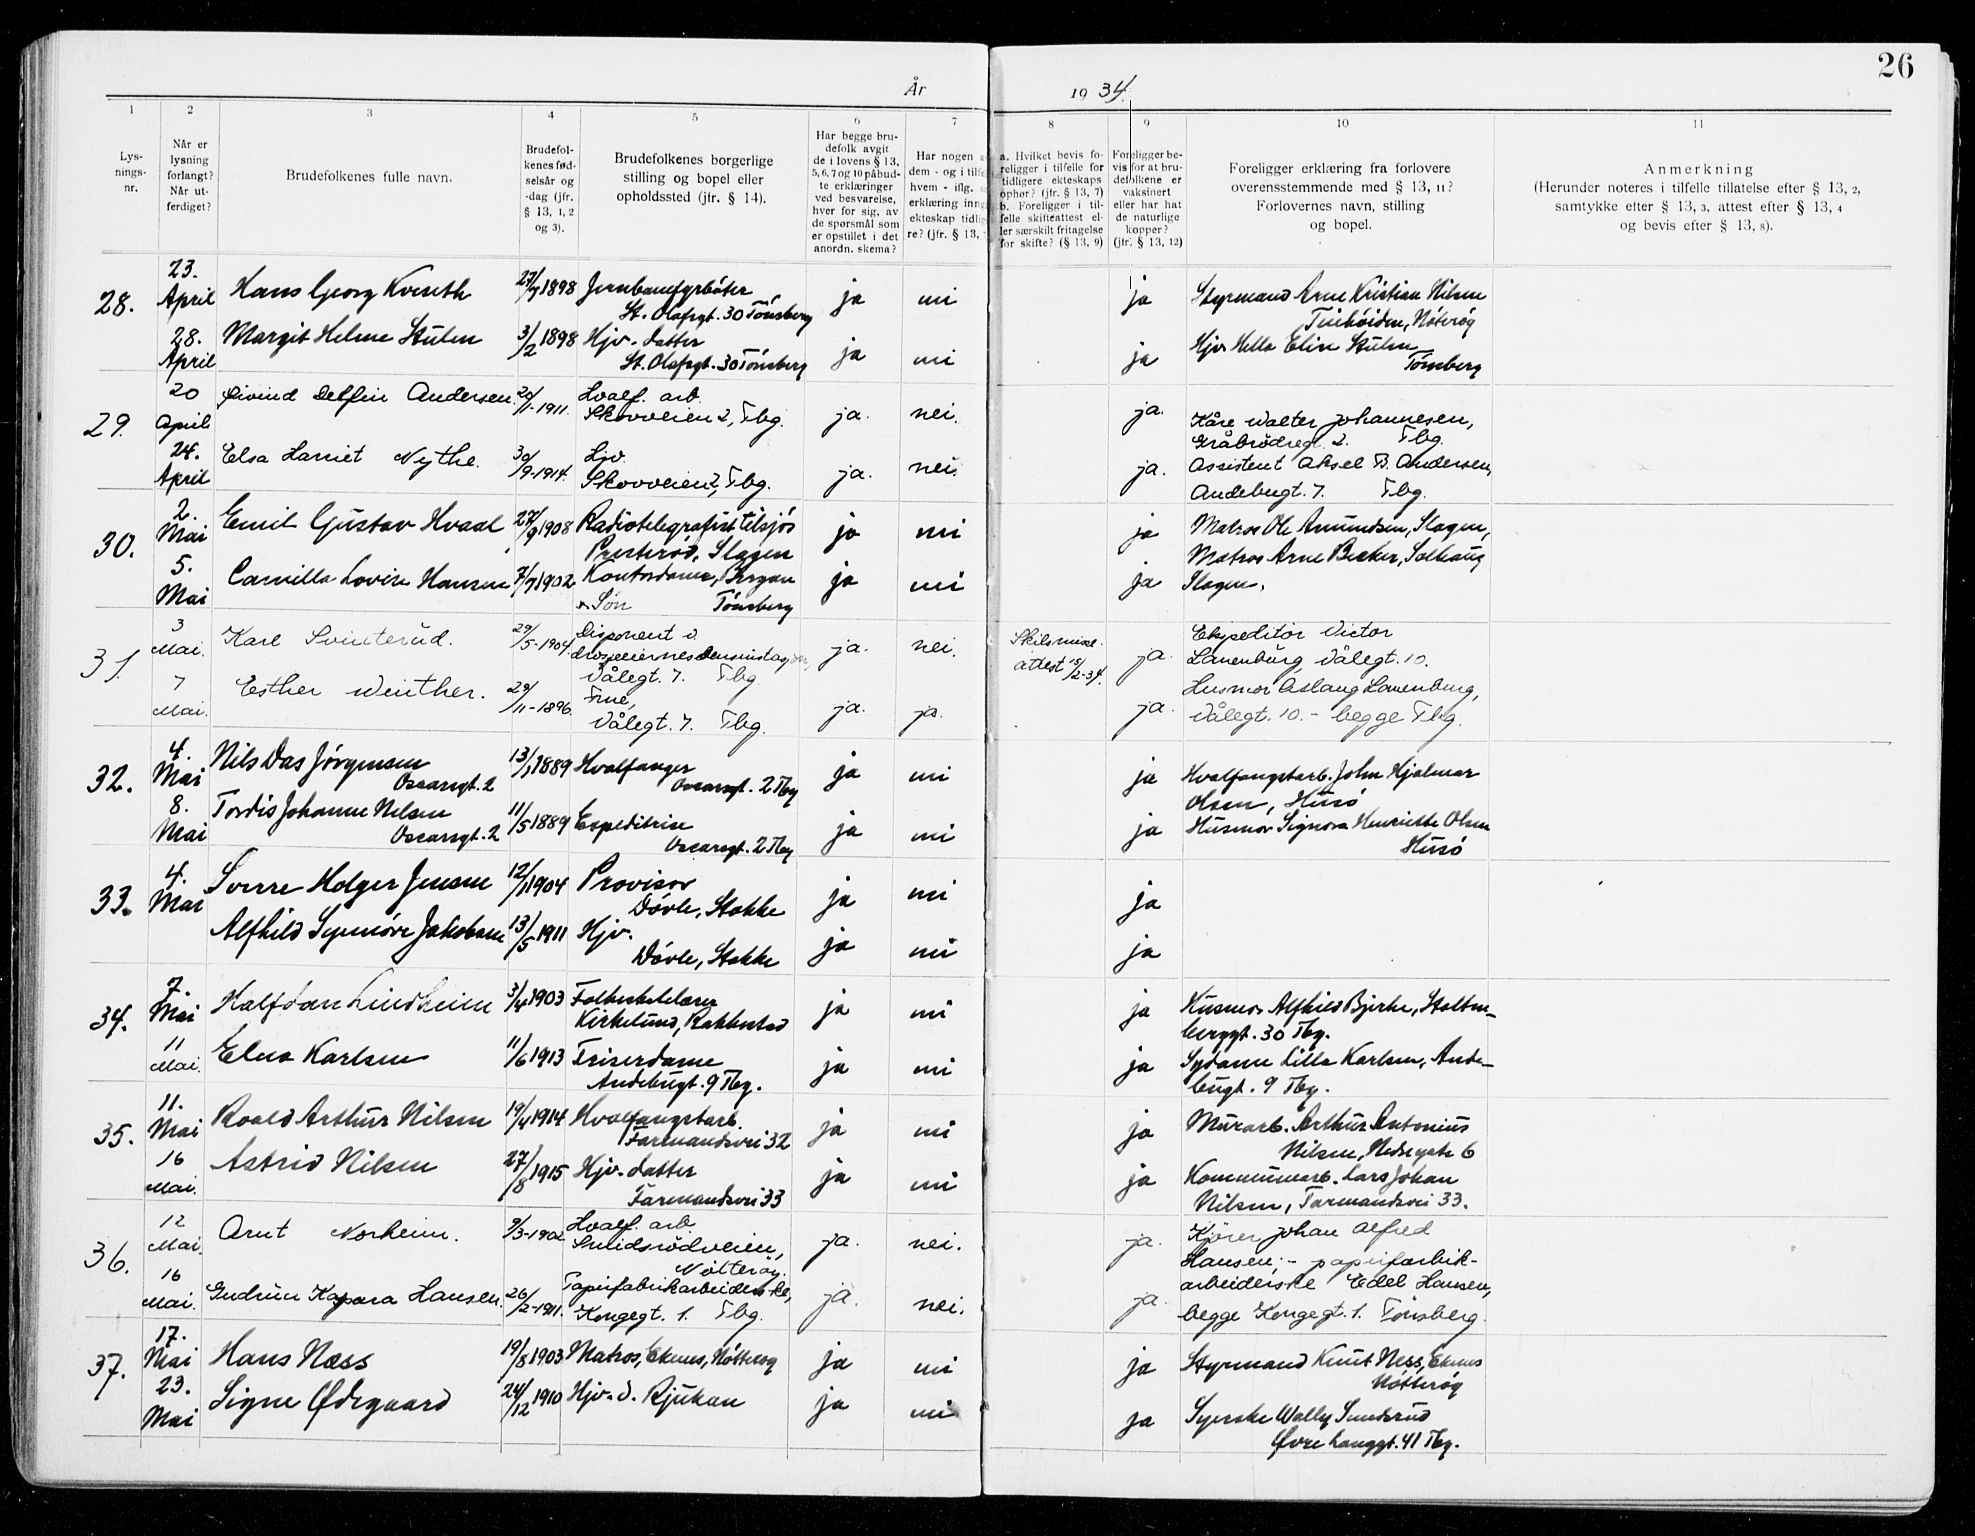 26
År 1934.
1 2 3 4 5 6 7 8 9 10 11
Lys-
nings-
nr.
Når er
lysning
forlangt?
Når ut-
ferdiget?
Brudefolkenes fulle navn.
Brudefol-
kenes fød-
selsår og
-dag (jfr.
§ 13, 1, 2
og 3).
Brudefolkenes borgerlige
stilling og bopel eller
opholdssted (jfr. § 14).
Har begge bru-
defolk avgit
de i lovens § 13,
5, 6, 7 og 10 påbud-
te erklæringer
ved besvarelse,
hver for sig, av
de spørsmål som
er opstillet i det
anordn. skema?
Har nogen a
dem - og i tilf
hvem - iflg.
erklæring inn
ekteskap tidl
re? (jfr. § 13,
a. Hvilket bevis fo-
religger i tilfelle for
tidligere ekteskaps
ophør? (jfr. § 13, 7)
b. Foreligger i til-
felle skifteattest el-
ler særskilt fritagelse
for skifte? (§ 13, 9)
Foreligger be-
vis for at bru-
defolkene er
vaksinert
eller har hat
de naturlige
kopper?
(jfr. § 13, 12)
Foreligger erklæring fra forlovere
overensstemmende med § 13, 11?
Forlovernes navn, stilling
og bopel.
Anmerkning
(Herunder noteres i tilfelle tillatelse efter § 13, 2,
samtykke efter § 13, 3, attest efter § 13, 4
og bevis efter § 13, 8).
28.
23.
April
Hans Georg Kverneth 27/7 1898 Jernbanefyrbøter
St. Olafsgt. 30 Tönsberg ja nei ja Styrmand Arne Kristian Nilsen
Nöteröy
28.
April
Margit Helene Stulen 3/2 1898 Hjv. datter
St. Olafsgt. 30 Tönsberg ja nei ja Hjv. Hella Elise Stulen
Tönsberg
29.
20
April
Øivind Delfin Andersen. 20/1-1911. Hvalf. arb.
Skovveien 2, Tbg. ja. nei. ja. Kåre Walter Johannesen,
Gråbrödregt. 2. Tbg.
24.
April
Elsa Harriet Nythe. 30/9-1914. Hjv.
Skovveien 2, Tbg. ja. nei. ja. Assistent Aksel B. Andersen,
Andebugt. 7. Tbg.
30.
2.
Mai
Emil Gustav Hvaal 27/9 1908 Radiotelegrafist tilsjös
Presteröd, Slagen ja nei ja Matros Ole Amundsen, Slagen,
Matros Arne Becker, Solhaug
5.
Mai
Camilla Lovise Hansen 7/7 1902 Kontordame, Bergan
& Sön Tönsberg ja nei ja Slagen.
31.
3
Mai.
Karl Svinterud. 29/5-1904. Disponent v.
Vålegt. 7. Tbg. ja. nei. Skilsmisse-
attest 15/2-34. ja. Ekspeditör Victor
Lauenburg, Vålegt. 10.
7
Mai.
Esther Winther. 29/11-1896. Frue,
Vålegt. 7. Tbg. ja. ja. ja. Husmor Aslaug Lauenburg,
Vålegt. 10. - begge Tbg.
32.
4.
Mai
Nils Das Jörgensen
Oscarsgt. 2 13/1 1889 Hvalfanger
Oscarsgt. 2 Tbg ja nei ja Hvalfangstarb. John Hjalmar
Olsen, Husö
8.
Mai
Tordis Johanne Nilsen
Oscarsgt. 2 11/5 1889 Espeditrise
Oscarsgt. 2 Tbg ja nei ja Husmor Signora Henriette Olsen
Husö
33.
4.
Mai
Sverre Holger Jensen 12/1 1904 Provisor
Dövle, Stokke ja nei ja
Alfhild Synnöve Jakobsen 13/5 1911 Hjv.
Dövle, Stokke ja nei ja
34.
7.
Mai
Halfdan Lindheim 3/4 1903 Folkeskolelærer
Kirkelund, Rakkestad ja nei ja Husmor Alfhild Bjerke, Stolten-
bergsgt. 30 Tbg.
11
Mai.
Elna Karlsen 11/6 1913 Friserdame
Andebugt. 9 Tbg. ja nei ja Sydame Lilla Karlsen, Ande-
bugt. 9 Tbg.
35.
11.
Mai
Roald Arthur Nilsen 19/4 1914 Hvalfangstarb.
Farmandsvei 32 ja nei ja Murarb. Arthur Antonius
Nilsen, Nedregate 6
16
Mai.
Astrid Nilsen 27/8 1915 Hjv. datter
Farmandsvei 33 ja nei ja Kommunearb. Lars Johan
Nilsen, Farmandsvei 33.
36.
12
Mai.
Arnt Norheim. 9/3-1902 Hvalf. arb.
Smidsrödveien,
Nötteröy. ja. nei. ja. Kjörer Johan Alfred
Hansen; - papirfabrik-
16
Mai.
Gudrun Kapara Hansen. 26/2-1911. Papirfabrikarbeiderske,
Kongegt. 1. Tbg. ja. nei. ja. arbeiderske Edel Hansen,
begge Kongegt. 1. Tönsberg.
37.
17.
Mai
Hans Næss 19/8 1903 Matros, Ekenes, Nötteröy ja nei ja Styrmand Knut Ness, Ekenes
Nötteröy
23.
Mai
Signe Ødegaard 24/12 1910 Hjv. d. Rjukan ja nei ja Syerske Wally Sundsrud
Øvre Langgt. 41 Tbg.